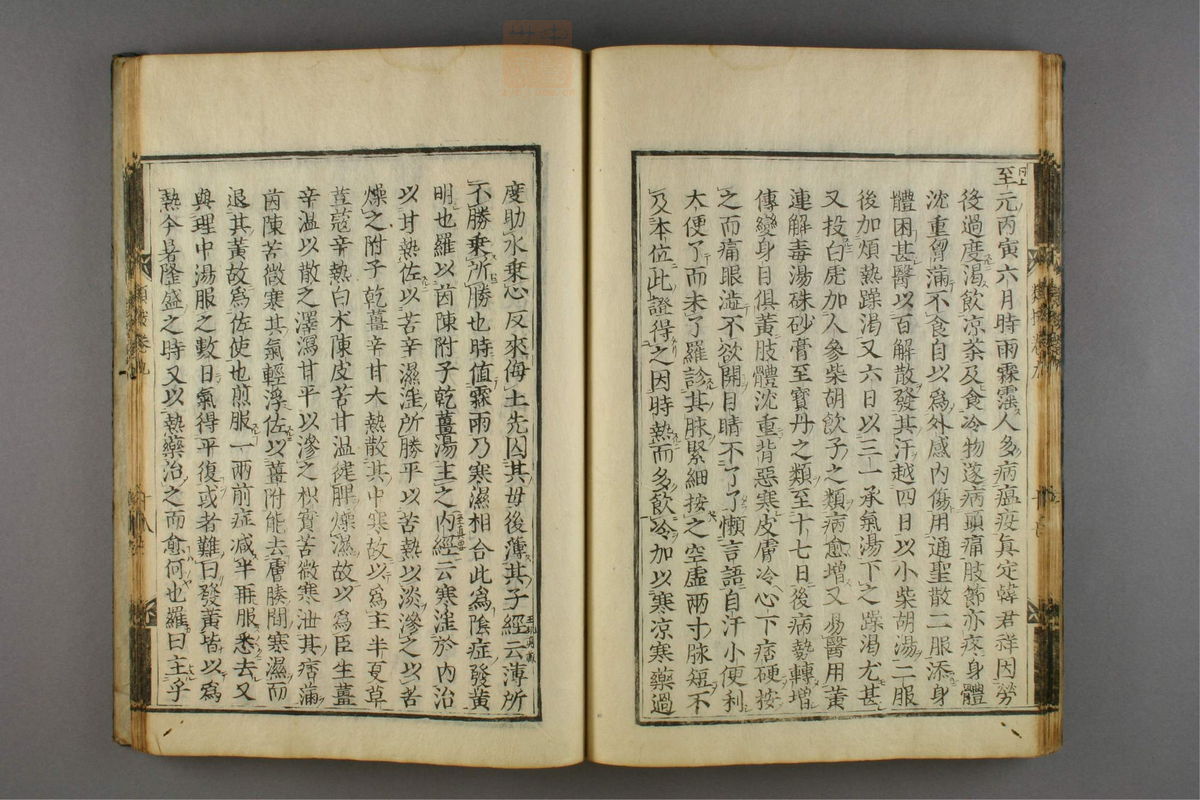 至元丙寅六月時雨霖霪人多病瘟疫真定韓君祥因勞
後過度渴飲凉茶及食冷物遂病頭痛肢節亦疼身體
沈重胷滿不食自以為外感內傷用通聖散二服添身
體困甚醫以百解散發其汗越四日以小柴胡湯二服
後加煩熱躁渴又六日以三一承氣湯下之躁渴尤甚
又投白虎加人參柴胡飲子之類病愈增又易醫用黃
連解毒湯硃砂膏至寶丹之類至十七日後病勢轉增
傳變身目俱黃肢體沈重背惡寒皮膚冷心下痞硬按
之而痛眼澁不欲開目睛不了了懶言語自汗小便利
大便了而未了羅診其脉緊細按之空虛兩寸脉短不
及本位此證得之因時熱而多飲冷加以寒凉寒藥過
度助水乗心反來侮土先囚其母後薄其子經云薄所
不勝乗所勝也時值霖雨乃寒濕相合此為陰症發黃
明也羅以茵陳附子乾薑湯主之內經云寒滛於內治
以甘熱佐以苦辛濕滛所勝平以苦熱以淡滲之以苦
燥之附子乾薑辛甘大熱散其中寒故以為主半夏草
荳蔻辛熱白术陳皮苦甘溫健脾燥濕故以為臣生薑
辛溫以散之澤瀉甘平以滲之枳實苦微寒泄其痞滿
茵陳苦微寒其氣輕浮佐以薑附能去膚腠間寒濕而
退其黃故為佐使也煎服一兩前症减半再服悉去又
與理中湯服之數日氣得平復或者難曰發黃皆以為
熱今暑隆盛之時又以熱藥治之而愈何也羅曰主乎